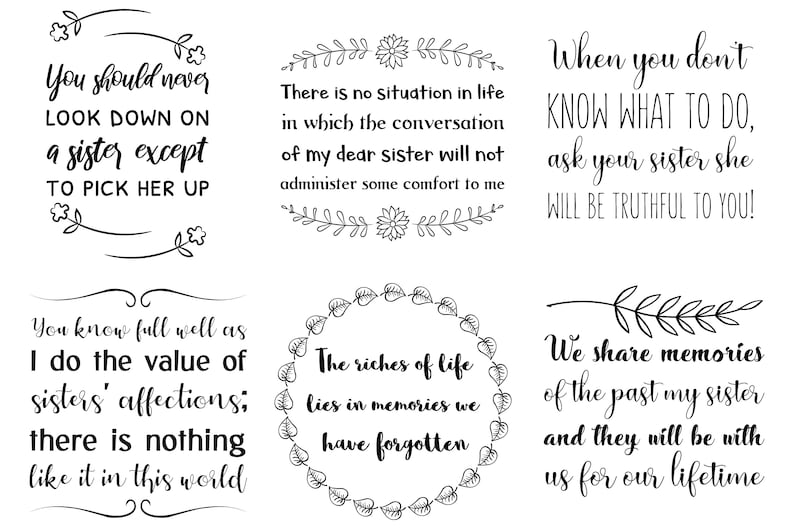 You should never
LOOK DOWN ON
a sister except
TO PICK HER UP
There is no situation in life
in which the conversation
of my dear sister will not
administer some comfort to me
When you don't
KNOW WHAT TO DO,
ask your sister she
WILL BE TRUTHFUL TO YOU!
You know full well as
I do the value of
sisters' affections;
there is nothing
like it in this world
The riches of life
lies in memories we
have forgotten
We share memories
of the past my sister
and they will be with
us for our lifetime